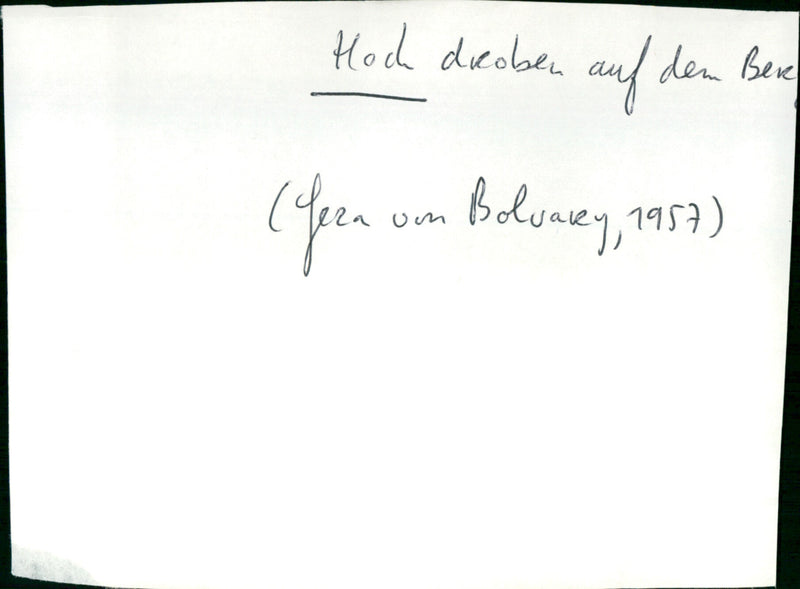 Hoch droben auf dem Berg
(Geza von Bolvary, 1957)